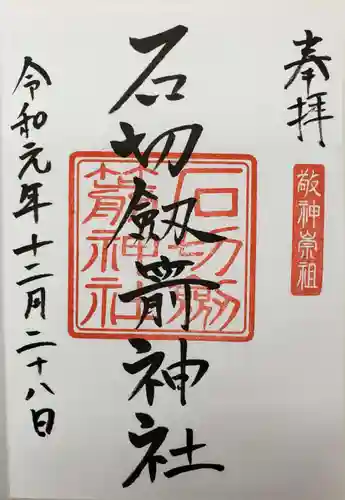 奉拝
敬神崇祖
石切劔箭神社
石切劔
箭神社
令和元年十二月二十八日